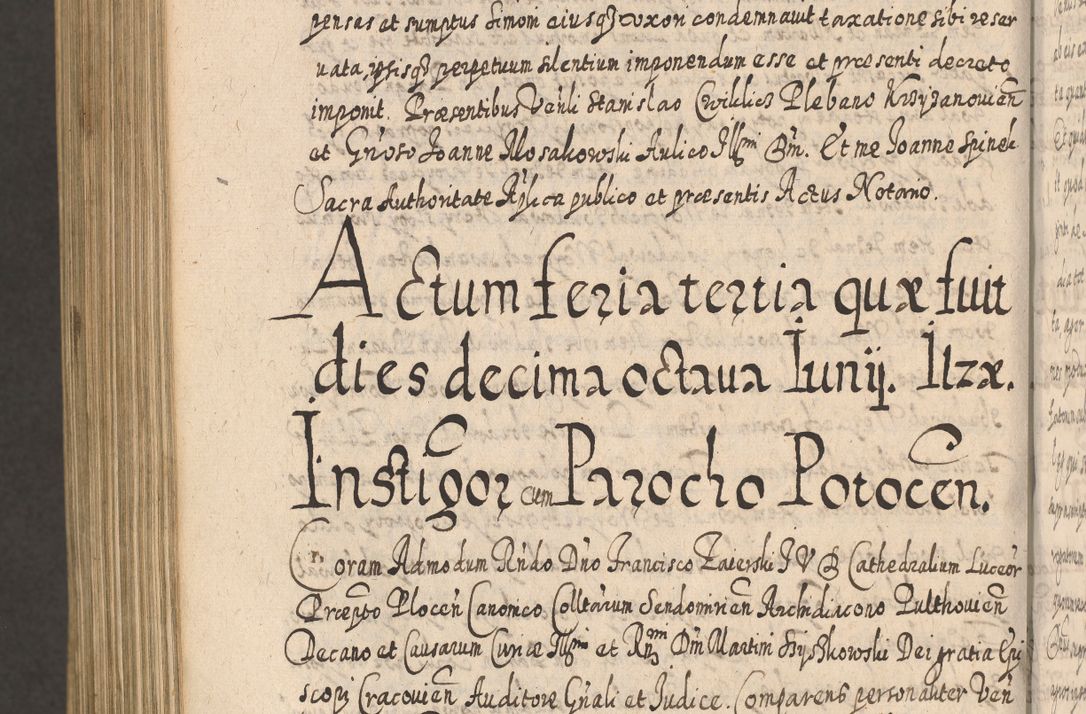 pensas et sumptus Simoni eiusq₃ uxori condemnauit taxatione sibi reser
uata, ipsisq₃ perpetuum silentium imponendum esse et præsenti decreto
imponit. Præsentibus Veñli Stanislao Cwiklicz Plebano Krzyzanovień
et Gñoso Joanne Mosakowski Aulico Illmi Dñi. Et me Joanne Spinek
Sacra Authoritate Aplica publico et præsentis Actus Notario.
Actum feria tertia quæ fuit
dies decima octaua Iunij. Ilzæ.
Instigõr cum Parocho Potocẽn.
Coram Admodum Rñdo Dño Francisco Zaierski IVD Cathedralium Luceor
Præpto Plocẽn Canonico Colltarum Sendomirien Archidiacono Pulthouień
Decano et Causarum Curiæ Illmi et Rmi Dñi Martini Szyszkowski Dei gratia Epi
scopi Cracouień Auditore Gñali et Judice. Comparens personaliter Ven